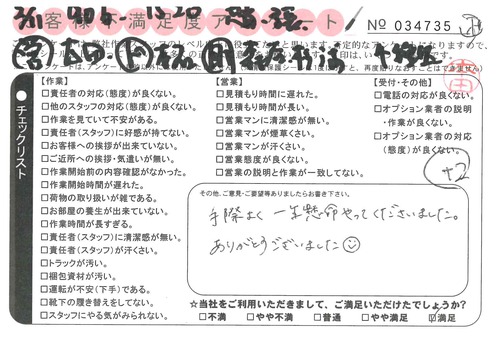 お客様不満足度アンケート
No 034735
チェックリスト
【作業】
□責任者の対応(態度)が良くない。
□他のスタッフの対応(態度)が良くない。
□作業を見ていて不安がある。
□責任者(スタッフ)に好感が持てない。
□お客様への挨拶が出来ていない。
□ご近所への挨拶・気遣いが無い。
□作業開始前の内容確認がなかった。
□作業開始時間が遅れた。
□荷物の取り扱いが雑である。
□お部屋の養生が出来ていない。
□作業時間が長すぎる。
□責任者(スタッフ)に清潔感が無い。
□責任者(スタッフ)が汗くさい。
□トラックが汚い。
□梱包資材が汚い。
□運転が不安(下手)である。
□靴下の履き替えをしてない。
□スタッフにやる気がみられない。
【営業】
□見積もり時間に遅れた。
□見積もり時間が長い。
□営業マンに清潔感が無い。
□営業マンが煙草くさい。
□営業マンが汗くさい。
□営業態度が良くない。
□営業の説明と作業が一致してない。
【受付・その他】
□電話の対応が良くない。
□オプション業者の説明
・作業が良くない。
□オプション業者の対応
(態度)が良くない。
+2
その他、ご意見・ご要望等ありましたらお書き下さい。
手際よく 一生懸命やってくださいました。
ありがとうございました
☆当社をご利用いただきまして、ご満足いただけたでしょうか?
□不満 □やや不満 □普通 □やや満足 ☑満足